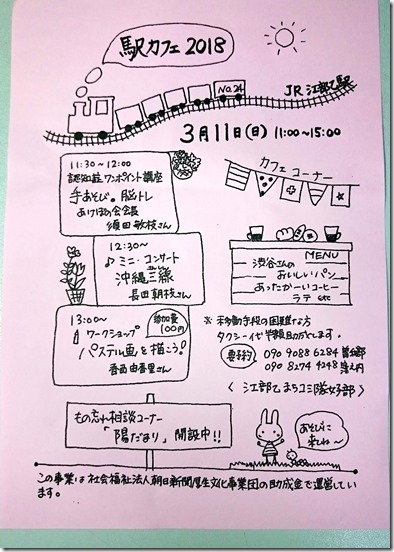 駅カフェ 2018
NO.24
JR 江部乙駅
3月11日(日) 11:00〜15:00
11:30〜12:00
認知症ワンポイント講座
手あそび。脳トレ
あけぼの会会長
須田敏枝さん
12:30〜
♪ ミニ・コンサート
沖縄三線
長田朝枝さん
13:00〜
参加費
100円
ワークショップ
パステル画を描こう!
香西由香里さん
カフェコーナー
MENU
渋谷さんの
おいしいパン
あったかーいコーヒー
ラテ etc
※ 移動手段の困難な方
タクシー代半額助成します。
要予約 090 9088 6284
090 8274 4248
〈 江部乙まちコミ隊女子部 〉
もの忘れ相談コーナー
「陽だまり」 開設中!!
あそびに
来てね〜
この事業は社会福祉法人朝日新聞厚生文化事業団の助成金で運営してい
ます。